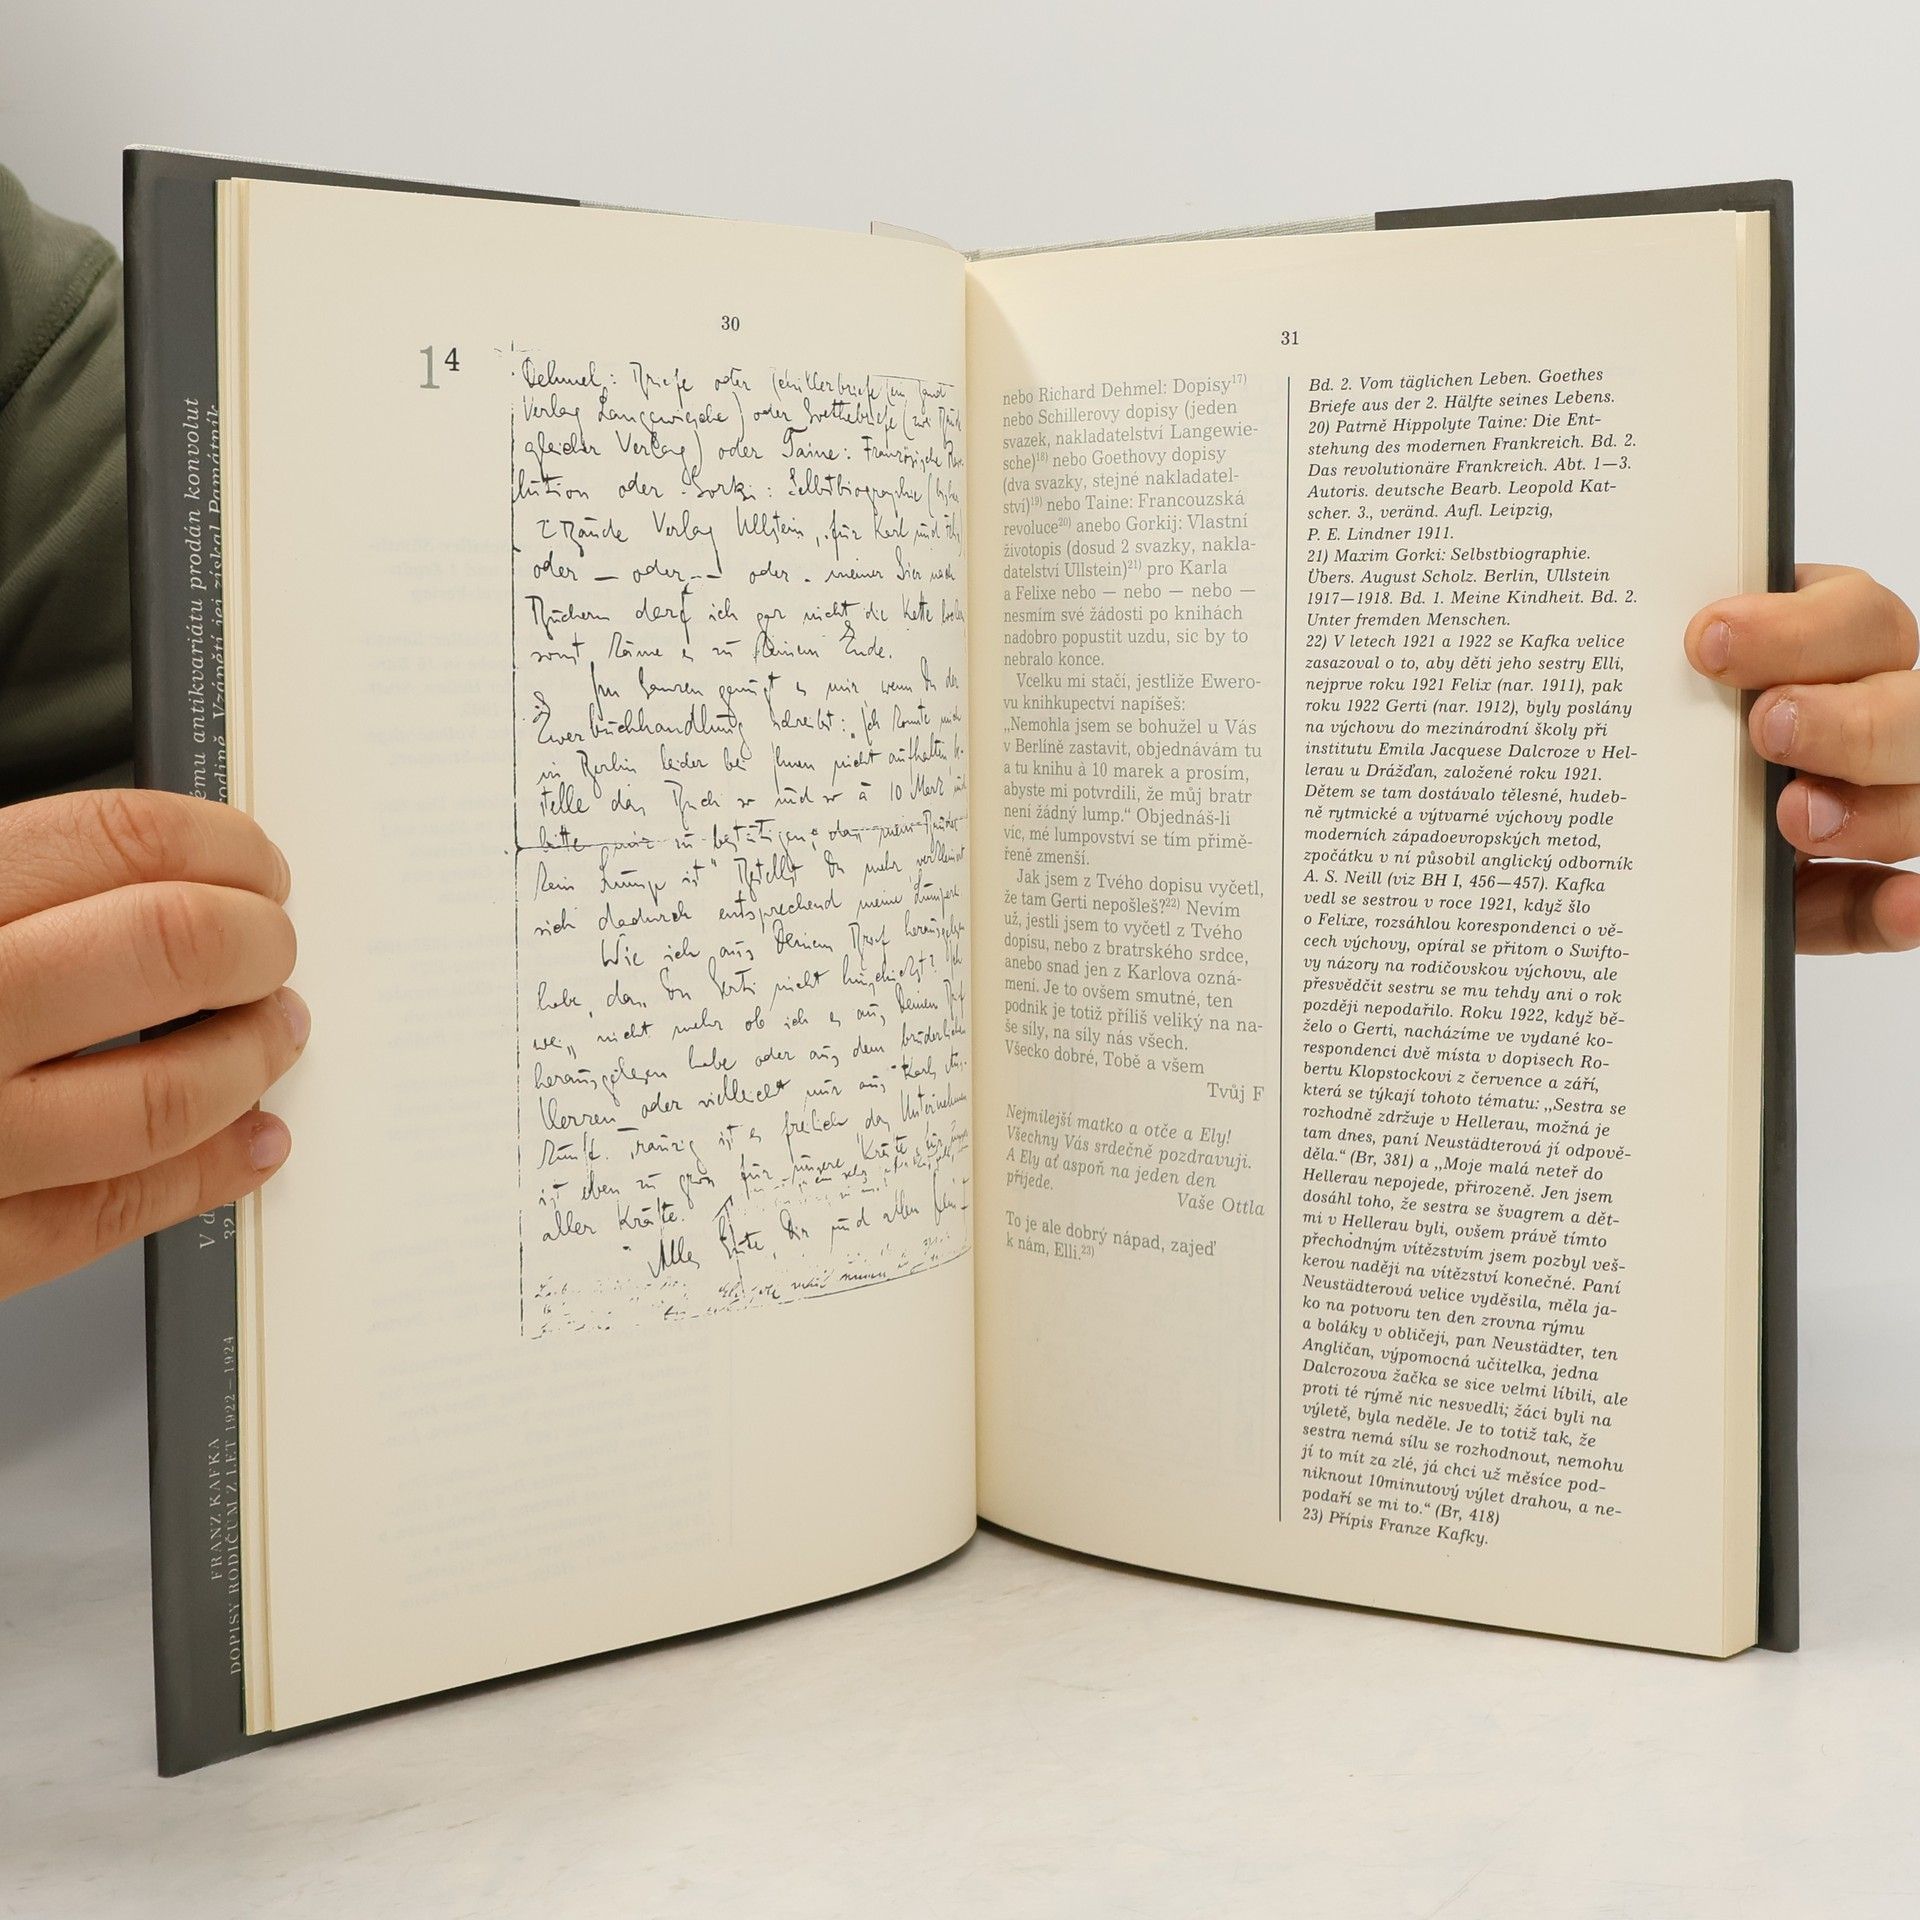 ému antikvariátu prodán konvolut
rodině. Vzápětí jej získal Památník
V d
32
FRANZ KAFKA
DOPISY RODIČŮM Z LET 1922–1924
30
1⁴
Dehmel: Briefe oder Schillerbriefe (ein Band
Verlag Langewiesche) oder Goethebriefe (zwei Bände
gleicher Verlag) oder Taine: Französische Revo-
lution oder Gorki: Selbstbiographie (bisher
2 Bände Verlag Ullstein, für Karl und Felix
oder — oder — oder – meiner Gier nach
Büchern darf ich gar nicht die Kette
sonst käme es zu keinem Ende.
Im Ganzen genügt es mir, wenn Du der
Ewerbuchhandlung schreibst: „Ich konnte mich
in Berlin leider bei Ihnen nicht aufhalten, be-
stelle das Buch so und so à 10 Mark und
bitte mir zu bestätigen, das mein Bruder
kein Lump ist" Bestellst Du mehr, verkleinert
sich dadurch entsprechend meine Lumperei.
Wie ich aus Deinem Brief herausgelesen
habe, dass Du Gerti nicht hinschickst? Ich
weiss nicht mehr ob ich es aus Deinem Brief
herausgelesen habe oder aus dem brüderlichen
Herzen oder vielleicht nur aus Karls Aus-
kunft. Traurig ist es freilich, das Unternehmen
ist eben zu gross für unsere Kräfte, für unser
aller Kräfte.
Alles Gute, Dir und allen Dein F
31
nebo Richard Dehmel: Dopisy¹⁷⁾
nebo Schillerovy dopisy (jeden
svazek, nakladatelství Langewie-
sche)¹⁸⁾ nebo Goethovy dopisy
(dva svazky, stejné nakladatel-
ství)¹⁹⁾ nebo Taine: Francouzská
revoluce²⁰⁾ anebo Gorkij: Vlastní
životopis (dosud 2 svazky, nakla-
datelství Ullstein)²¹⁾ pro Karla
a Felixe nebo — nebo — nebo —
nesmím své žádosti po knihách
nadobro popustit uzdu, sic by to
nebralo konce.
Vcelku mi stačí, jestliže Ewero-
vu knihkupectví napíšeš:
„Nemohla jsem se bohužel u Vás
v Berlíně zastavit, objednávám tu
a tu knihu à 10 marek a prosím,
abyste mi potvrdili, že můj bratr
není žádný lump.“ Objednáš-li
víc, mé lumpovství se tím přimě-
řeně zmenší.
Jak jsem z Tvého dopisu vyčetl,
že tam Gerti nepošleš?²²⁾ Nevím
už, jestli jsem to vyčetl z Tvého
dopisu, nebo z bratrského srdce,
anebo snad jen z Karlova ozná-
mení. Je to ovšem smutné, ten
podnik je totiž příliš veliký na na-
še síly, na síly nás všech.
Všecko dobré, Tobě a všem
Tvůj F
Nejmilejší matko a otče a Ely!
Všechny Vás srdečně pozdravuji.
A Ely ať aspoň na jeden den
přijede.
Vaše Ottla
To je ale dobrý nápad, zajeď
k nám, Elli.²³⁾
Bd. 2. Vom täglichen Leben. Goethes
Briefe aus der 2. Hälfte seines Lebens.
20) Patrně Hippolyte Taine: Die Ent-
stehung des modernen Frankreich. Bd. 2.
Das revolutionäre Frankreich. Abt. 1—3.
Autoris. deutsche Bearb. Leopold Kat-
scher. 3., veränd. Aufl. Leipzig,
P. E. Lindner 1911.
21) Maxim Gorki: Selbstbiographie.
Übers. August Scholz. Berlin, Ullstein
1917—1918. Bd. 1. Meine Kindheit. Bd. 2.
Unter fremden Menschen.
22) V letech 1921 a 1922 se Kafka velice
zasazoval o to, aby děti jeho sestry Elli,
nejprve roku 1921 Felix (nar. 1911), pak
roku 1922 Gerti (nar. 1912), byly poslány
na výchovu do mezinárodní školy při
institutu Emila Jacquese Dalcroze v Hel-
lerau u Drážďan, založené roku 1921.
Dětem se tam dostávalo tělesné, hudeb-
ně rytmické a výtvarné výchovy podle
moderních západoevropských metod,
zpočátku v ní působil anglický odborník
A. S. Neill (viz BH I, 456—457). Kafka
vedl se sestrou v roce 1921, když šlo
o Felixe, rozsáhlou korespondenci o vě-
cech výchovy, opíral se přitom o Swifto-
vy názory na rodičovskou výchovu, ale
přesvědčit sestru se mu tehdy ani o rok
později nepodařilo. Roku 1922, když bě-
želo o Gerti, nacházíme ve vydané ko-
respondenci dvě místa v dopisech Ro-
bertu Klopstockovi z července a září,
která se týkají tohoto tématu: „Sestra se
rozhodně zdržuje v Hellerau, možná je
tam dnes, paní Neustädterová jí odpově-
děla.“ (Br, 381) a „Moje malá neteř do
Hellerau nepojede, přirozeně. Jen jsem
dosáhl toho, že sestra se švagrem a dět-
mi v Hellerau byli, ovšem právě tímto
přechodným vítězstvím jsem pozbyl veš-
kerou naději na vítězství konečné. Paní
Neustädterová velice vyděsila, měla ja-
ko na potvoru ten den zrovna rýmu
a boláky v obličeji, pan Neustädter, ten
Angličan, výpomocná učitelka, jedna
Dalcrozova žačka se sice velmi líbili, ale
proti té rýmě nic nesvedli; žáci byli na
výletě, byla neděle. Je to totiž tak, že
sestra nemá sílu se rozhodnout, nemohu
jí to mít za zlé, já chci už měsíce pod-
niknout 10minutový výlet drahou, a ne-
podaří se mi to.“ (Br, 418)
23) Přípis Franze Kafky.